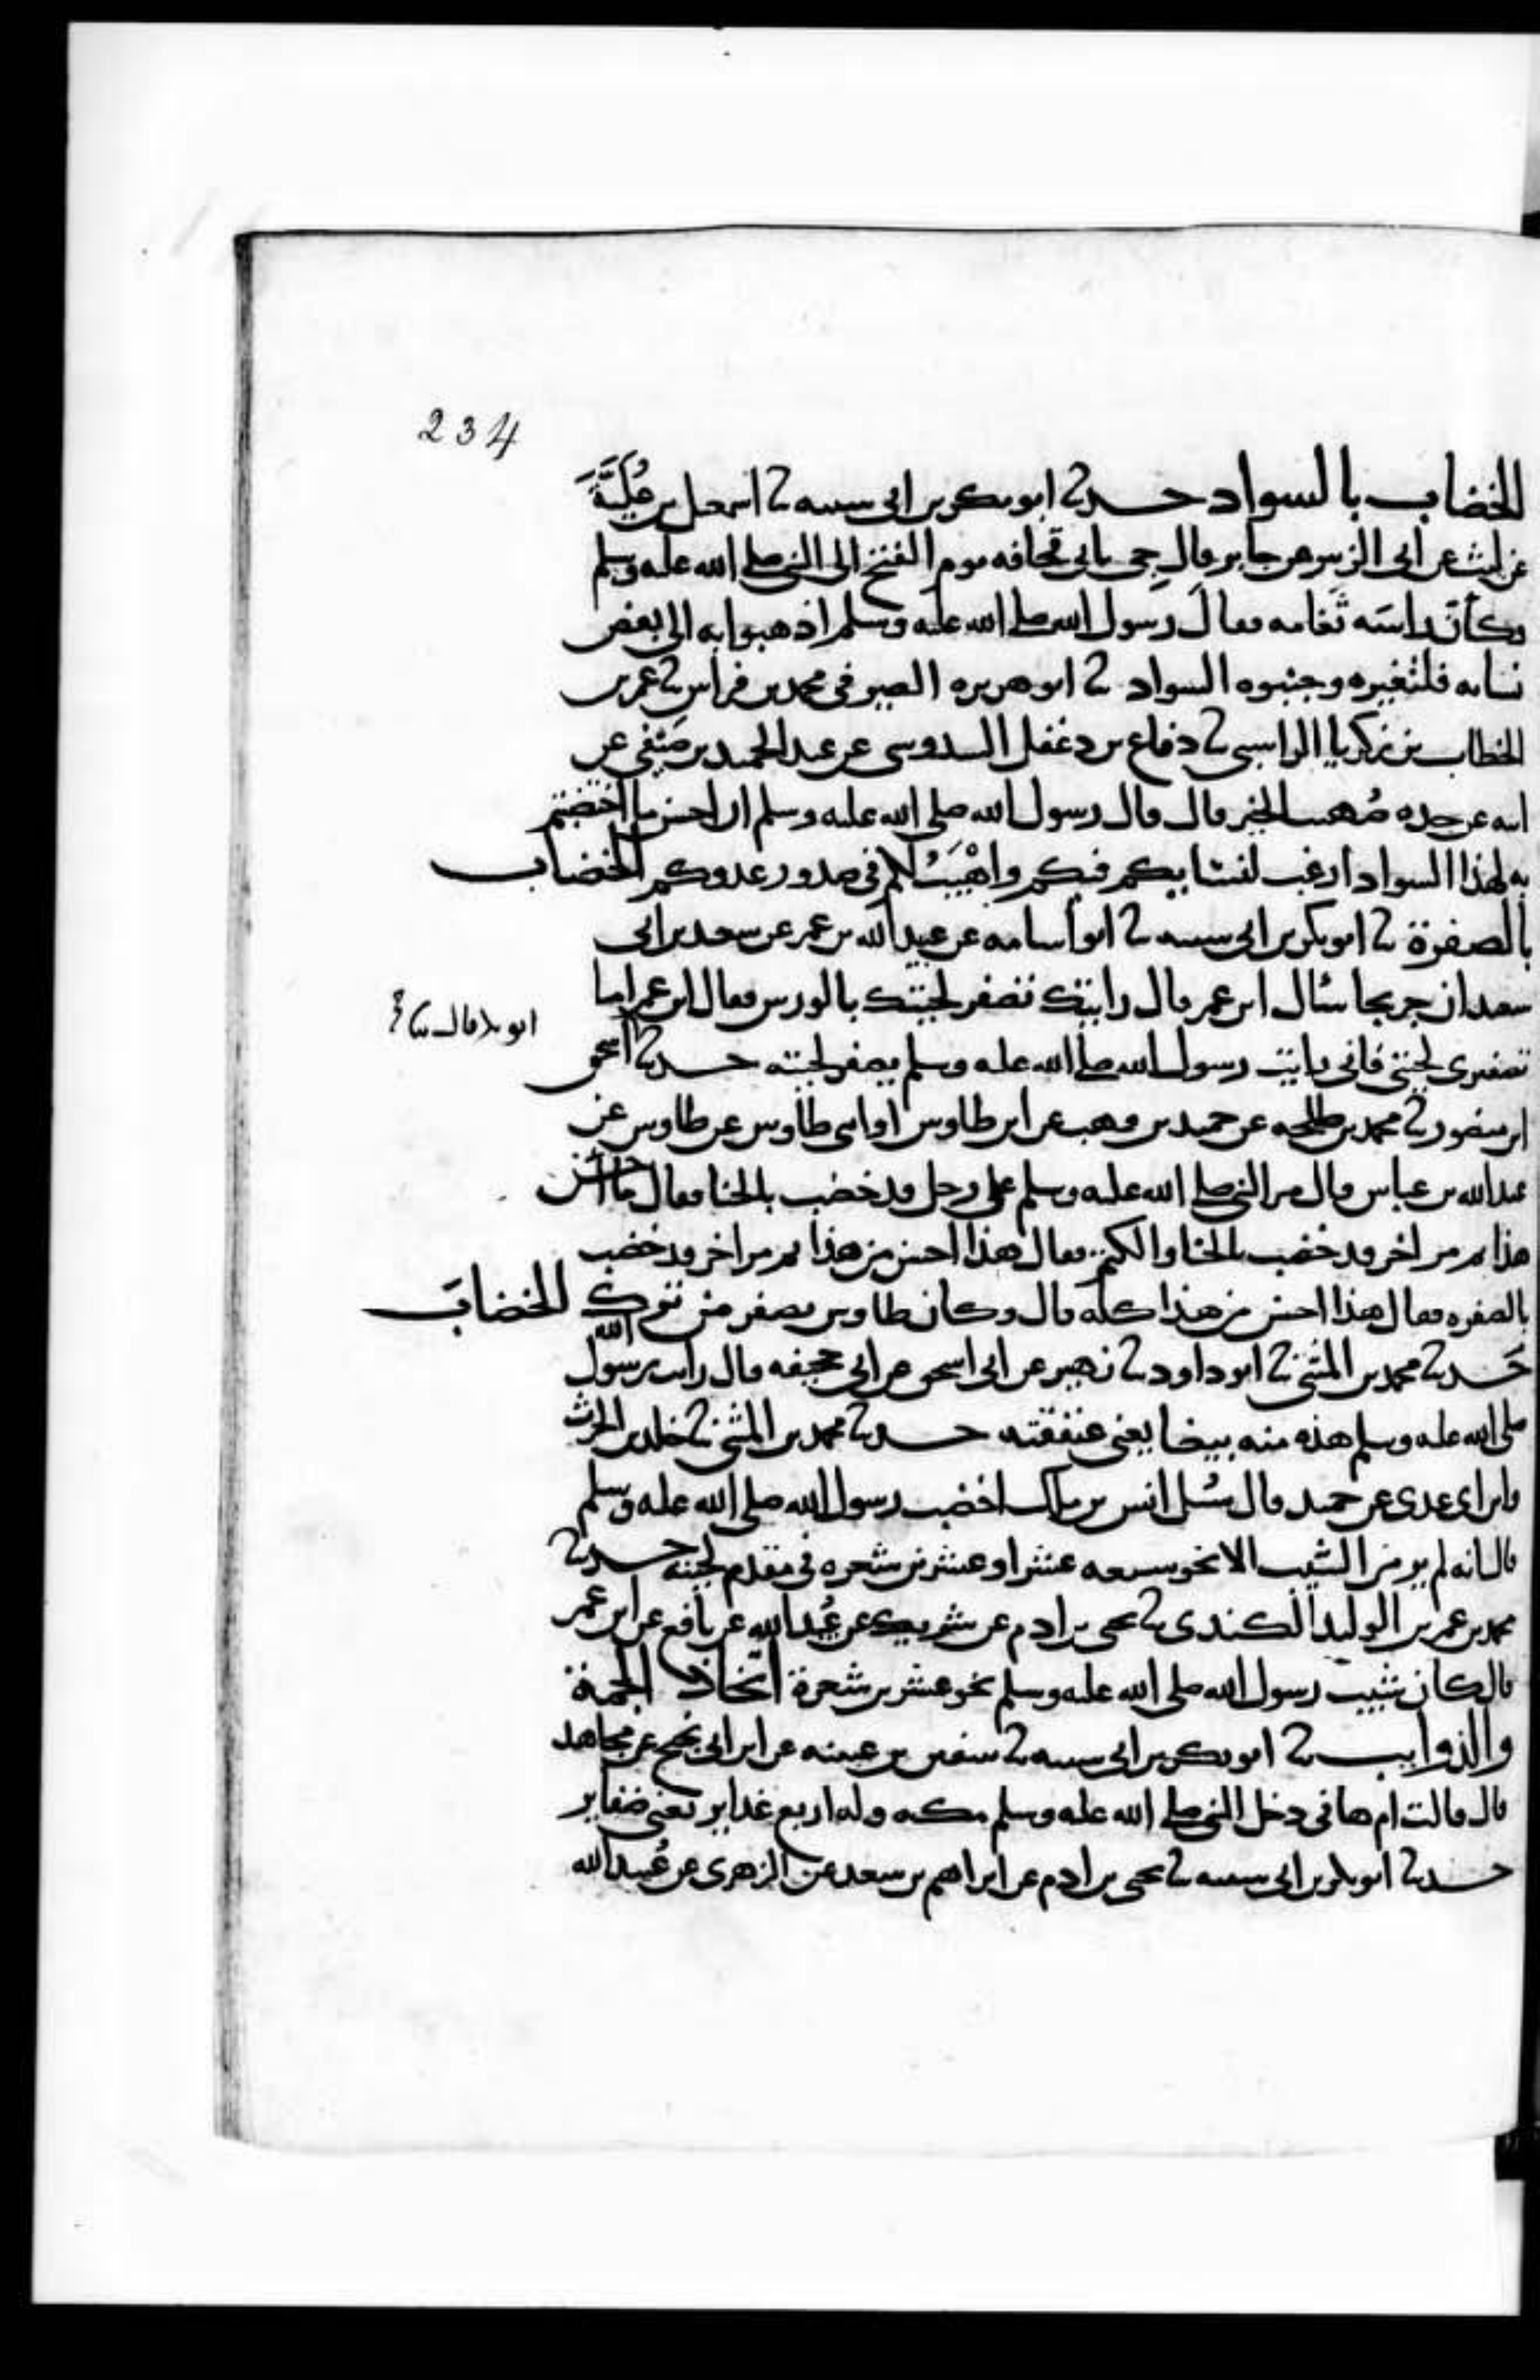 234
الخضاب بالسواد حدثنا ابو بكر بن ابي شيبه ثنا اسمعيل بن عُلَيَّة
عن ليث عن ابي الزبير عن جابر قال جي بابي قحافه يوم الفتح الى النبي صلى الله عليه وسلم
وكأن راسه ثغامه فقال رسول الله صلى الله عليه وسلم اذهبوا به الى بعض
نسايه فلتغيره وجنبوه السواد ثنا ابو هريره الصيرفي محمد بن فراس ثنا عمر بن
الخطاب بن زكريا الراسبي ثنا دفاع بن دغفل السدوسي عن عبد الحميد بن صيفي عن
ابيه عن جده صُهيب الخير قال قال رسول الله صلى الله عليه وسلم ان احسن ما اختضبتم
به لهذا السواد ارغب لنسايكم فيكم واهْيَبُ لكم في صدور عدوكم الخضاب
بالصفرة ثنا ابو بكر بن ابي شيبه ثنا ابو أسامه عن عبيد الله بن عمر عن سعيد بن ابي
سعيد ان جريجا سأل ابن عمر قال رايتك تصفر لحيتك بالورس فقال ابن عمر اما
تصفيري لحيتي فاني رايت رسول الله صلى الله عليه وسلم يصفر لحيته حدثنا اسحق
ابن منصور ثنا محمد بن طلحه عن حميد بن وهب عن ابن طاوس او ابني طاوس عن طاوس عن
عبد الله بن عباس قال مر النبي صلى الله عليه وسلم على رجل قد خضب بالحنا فقال ما احسن
هذا ثم مر اخر قد خضب بالحنا والكتم فقال هذا احسن من هذا ثم مر اخر وقد خضب
بالصفره فقال هذا احسن من هذا كله قال وكان طاوس يصفر من ترك الخضابَ
حَدثنا محمد بن المثنى ثنا ابو داود ثنا زهير عن ابي اسحق عن ابي جحيفه قال رايت رسول الله
صلى الله عليه وسلم هذه منه بيضا يعني عنفقته حدثنا محمد بن المثنى ثنا خلد بن الحرث
وابن ابي عدي عن حميد قال سُئل انس بن ملك اخضب رسول الله صلى الله عليه وسلم
قال انه لم ير من الشيب الا نحو سبعه عشر او عشرين شعره في مقدم لحيته حدثنا
محمد بن عمر بن الوليد الكندي ثنا يحيى بن ادم عن شريك عن عُبيد الله عن نافع عن ابن عمر
قال كان شيب رسول الله صلى الله عليه وسلم نحو عشرين شعرة اتخاذ الجمة
والذوايب ثنا ابو بكر بن ابي شيبه ثنا سفين بن عيينه عن ابن ابي نجيح عن مجاهد
قال قالت ام هاني دخل النبي صلى الله عليه وسلم مكه وله اربع غداير تعني ضفاير
حدثنا ابو بكر بن ابي شيبه ثنا يحيى بن ادم عن ابراهيم بن سعد عن الزهري عن عُبيد الله